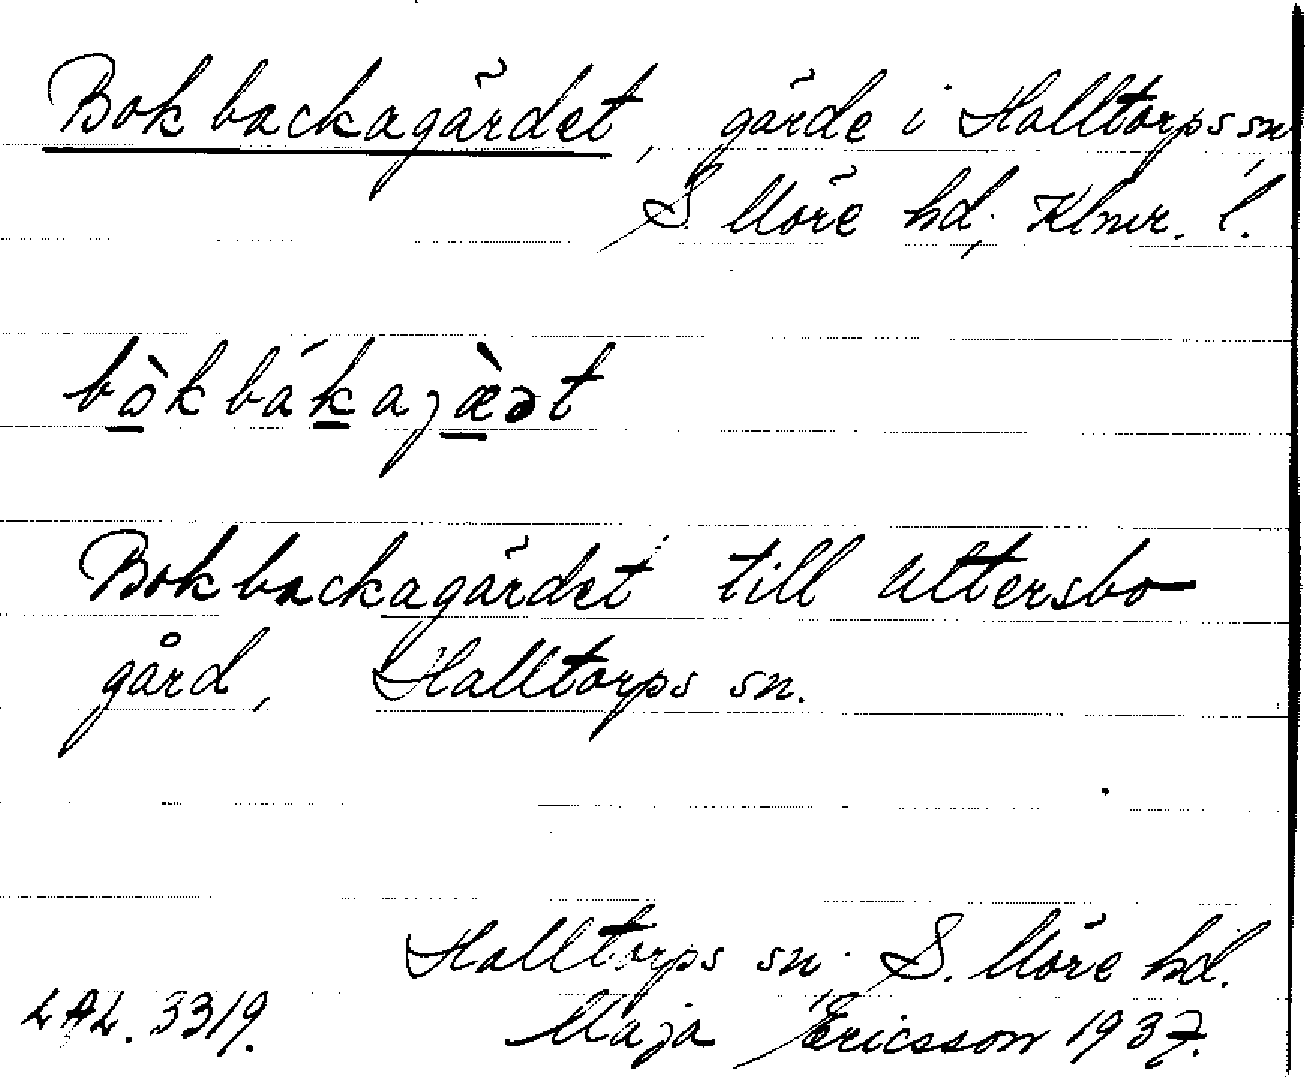 Bokbackagärdet, gärde i Halltorps sn,
S. Möre hd, Klmr. l.
bȯ̠̀kbák̠aȷæ̠̀ət
Bokbackagärdet till Uttersbo-
gård, Halltorps sn.
Halltorps sn. S. Möre hd.
LAL. 3319. Maja Ericsson 1937.